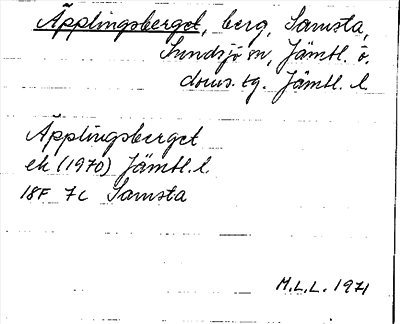 Äpplingsberget, berg, Samsta,
Sundsjö sn, Jämtl. ö.
doms. tg. Jämtl. l
Äpplingsberget
ek (1970) Jämtl. l.
18F 7c Samsta
M.L.L. 1971